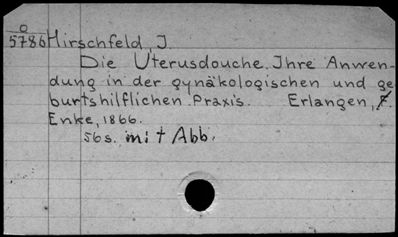 O
5786 Hirschfeld, J.
Die Uterusdouche. Ihre Anwen-
dung in der gynäkologischen und ge
burtshilflichen Praxis. Erlangen, F.
Enke, 1866.
56s. mit Abb.